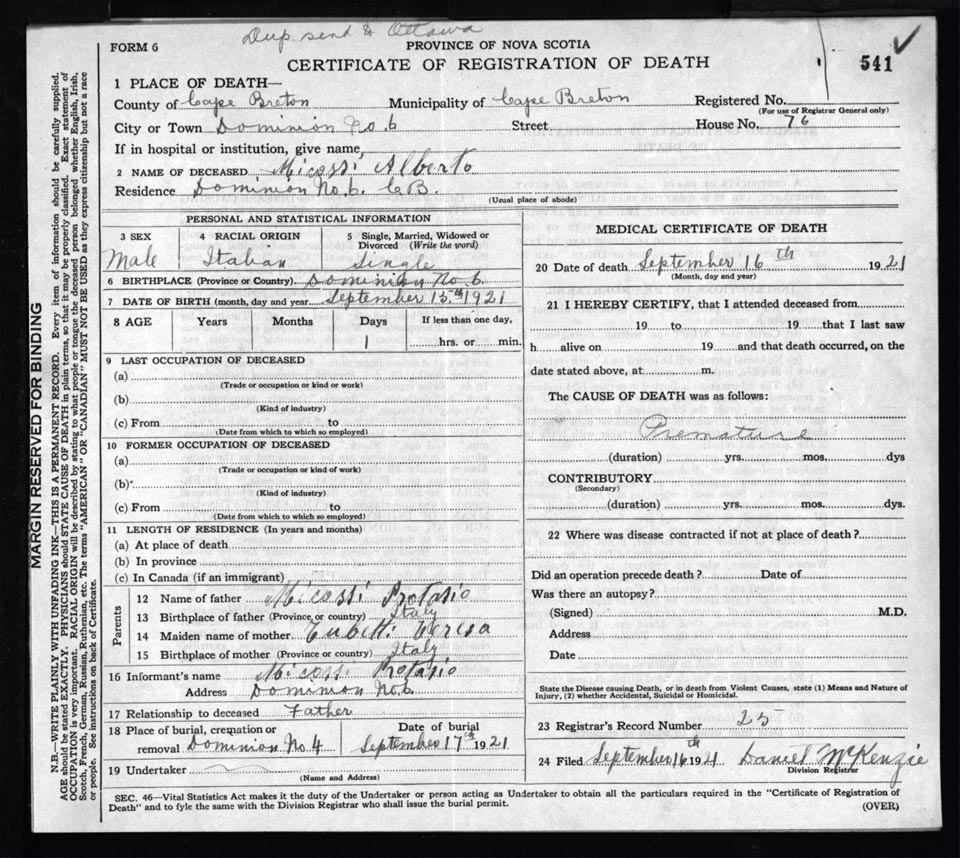 Dup send to Ottawa
FORM 6
PROVINCE OF NOVA SCOTIA
CERTIFICATE OF REGISTRATION OF DEATH
541
1 PLACE OF DEATH—
County of Cape Breton Municipality of Cape Breton Registered No.
(For use of Registrar General only)
City or Town Dominion No. 6 Street House No. 76
If in hospital or institution, give name,
2 NAME OF DECEASED Micossi Alberto
Residence Dominion No. 6. C.B.
(Usual place of abode)
PERSONAL AND STATISTICAL INFORMATION
3 SEX 4 RACIAL ORIGIN 5 Single, Married, Widowed or Divorced (Write the word)
Male Italian Single
6 BIRTHPLACE (Province or Country) Dominion No 6.
7 DATE OF BIRTH (month, day and year September 15th 1921
8 AGE Years Months Days If less than one day,
1 hrs. or min.
9 LAST OCCUPATION OF DECEASED
(a)
(Trade or occupation or kind or work)
(b)
(Kind of industry)
(c) From to
(Date from which to which so employed)
10 FORMER OCCUPATION OF DECEASED
(a)
(Trade or occupation or kind of work)
(b)
(Kind of industry)
(c) From to
(Date from which to which so employed)
11 LENGTH OF RESIDENCE (In years and months)
(a) At place of death
(b) In province
(c) In Canada (if an immigrant)
Parents
12 Name of father Micossi Protasio
13 Birthplace of father (Province or country) Italy
14 Maiden name of mother Tubetti Teresa
15 Birthplace of mother (Province or country) Italy
16 Informant's name Micossi Protasio
Address Dominion No. 6
17 Relationship to deceased Father
18 Place of burial, cremation or removal Dominion No. 4
Date of burial
September 17th 1921
19 Undertaker
(Name and Address)
MEDICAL CERTIFICATE OF DEATH
20 Date of death September 16th 1921
(Month, day and year)
21 I HEREBY CERTIFY, that I attended deceased from
19 to 19 that I last saw
h alive on 19 and that death occurred, on the
date stated above, at m.
The CAUSE OF DEATH was as follows:
Premature
(duration) yrs. mos. dys
CONTRIBUTORY
(Secondary)
(duration) yrs. mos. dys.
22 Where was disease contracted if not at place of death?
Did an operation precede death? Date of
Was there an autopsy?
(Signed) M.D.
Address
Date
State the Disease causing Death, or in death from Violent Causes, state (1) Means and Nature of
Injury, (2) whether Accidental, Suicidal or Homicidal.
23 Registrar's Record Number 25
24 Filed September 16th 1921 Daniel McKenzie
Division Registrar
SEC. 46—Vital Statistics Act makes it the duty of the Undertaker or person acting as Undertaker to obtain all the particulars required in the "Certificate of Registration of
Death" and to fyle the same with the Division Registrar who shall issue the burial permit.
(OVER)
MARGIN RESERVED FOR BINDING
N.B.—WRITE PLAINLY WITH UNFADING INK—THIS IS A PERMANENT RECORD. Every item of information should be carefully supplied.
AGE should be stated EXACTLY. PHYSICIANS should STATE CAUSE OF DEATH in plain terms, so that it may be properly classified. Exact statement of
OCCUPATION is very important. RACIAL ORIGIN will be described by stating to what people or tongue the deceased person belonged whether English, Irish,
Scotch, French, German, Russian, Ruthenian, etc. The terms "AMERICAN" OR "CANADIAN" MUST NOT BE USED as they express citizenship but not a race
or people. See instructions on back of Certificate.